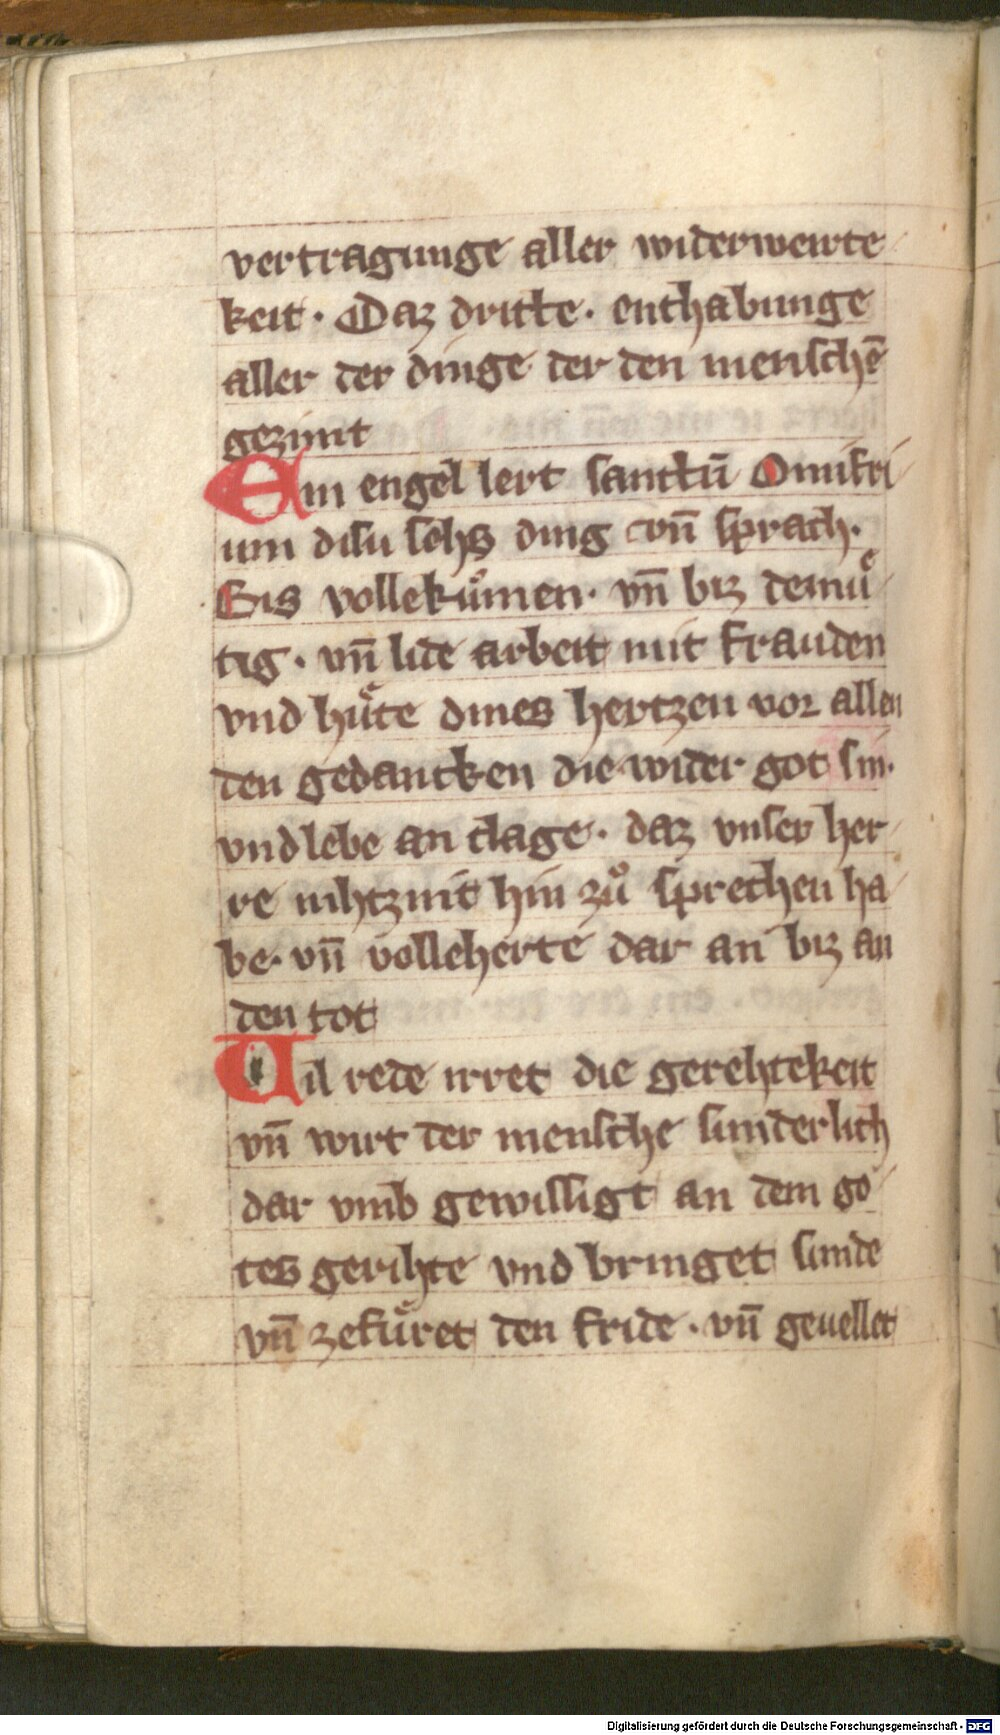 vertragunge aller widerwerte
keit · Daz dritte · enthabunge
aller der dinge der den menschē
gezimt
Ein engel lert sanctū Onufri
um disu sehs ding vn̄ sprach·
Bis vollekumen· vn̄ biz demuͤ
tig · vn̄ lide arbeit mit frauden
vnd huͤte dines hertzen vor allen
den gedancken die wider got sin·
vnd lebe an clage· daz vnser her
re nihtznit hin zuͦ sprechen ha
be· vn̄ volleherte dar an biz an
den tot
Vil rede irret die gerehtekeit
vn̄ wirt der mensche sunderlich
dar vmb gewilligt an dem go
tes gerihte vnd bringet sunde
vn̄ zefuͤret den fride · vn̄ geuellet
Digitalisierung gefördert durch die Deutsche Forschungsgemeinschaft - DFG